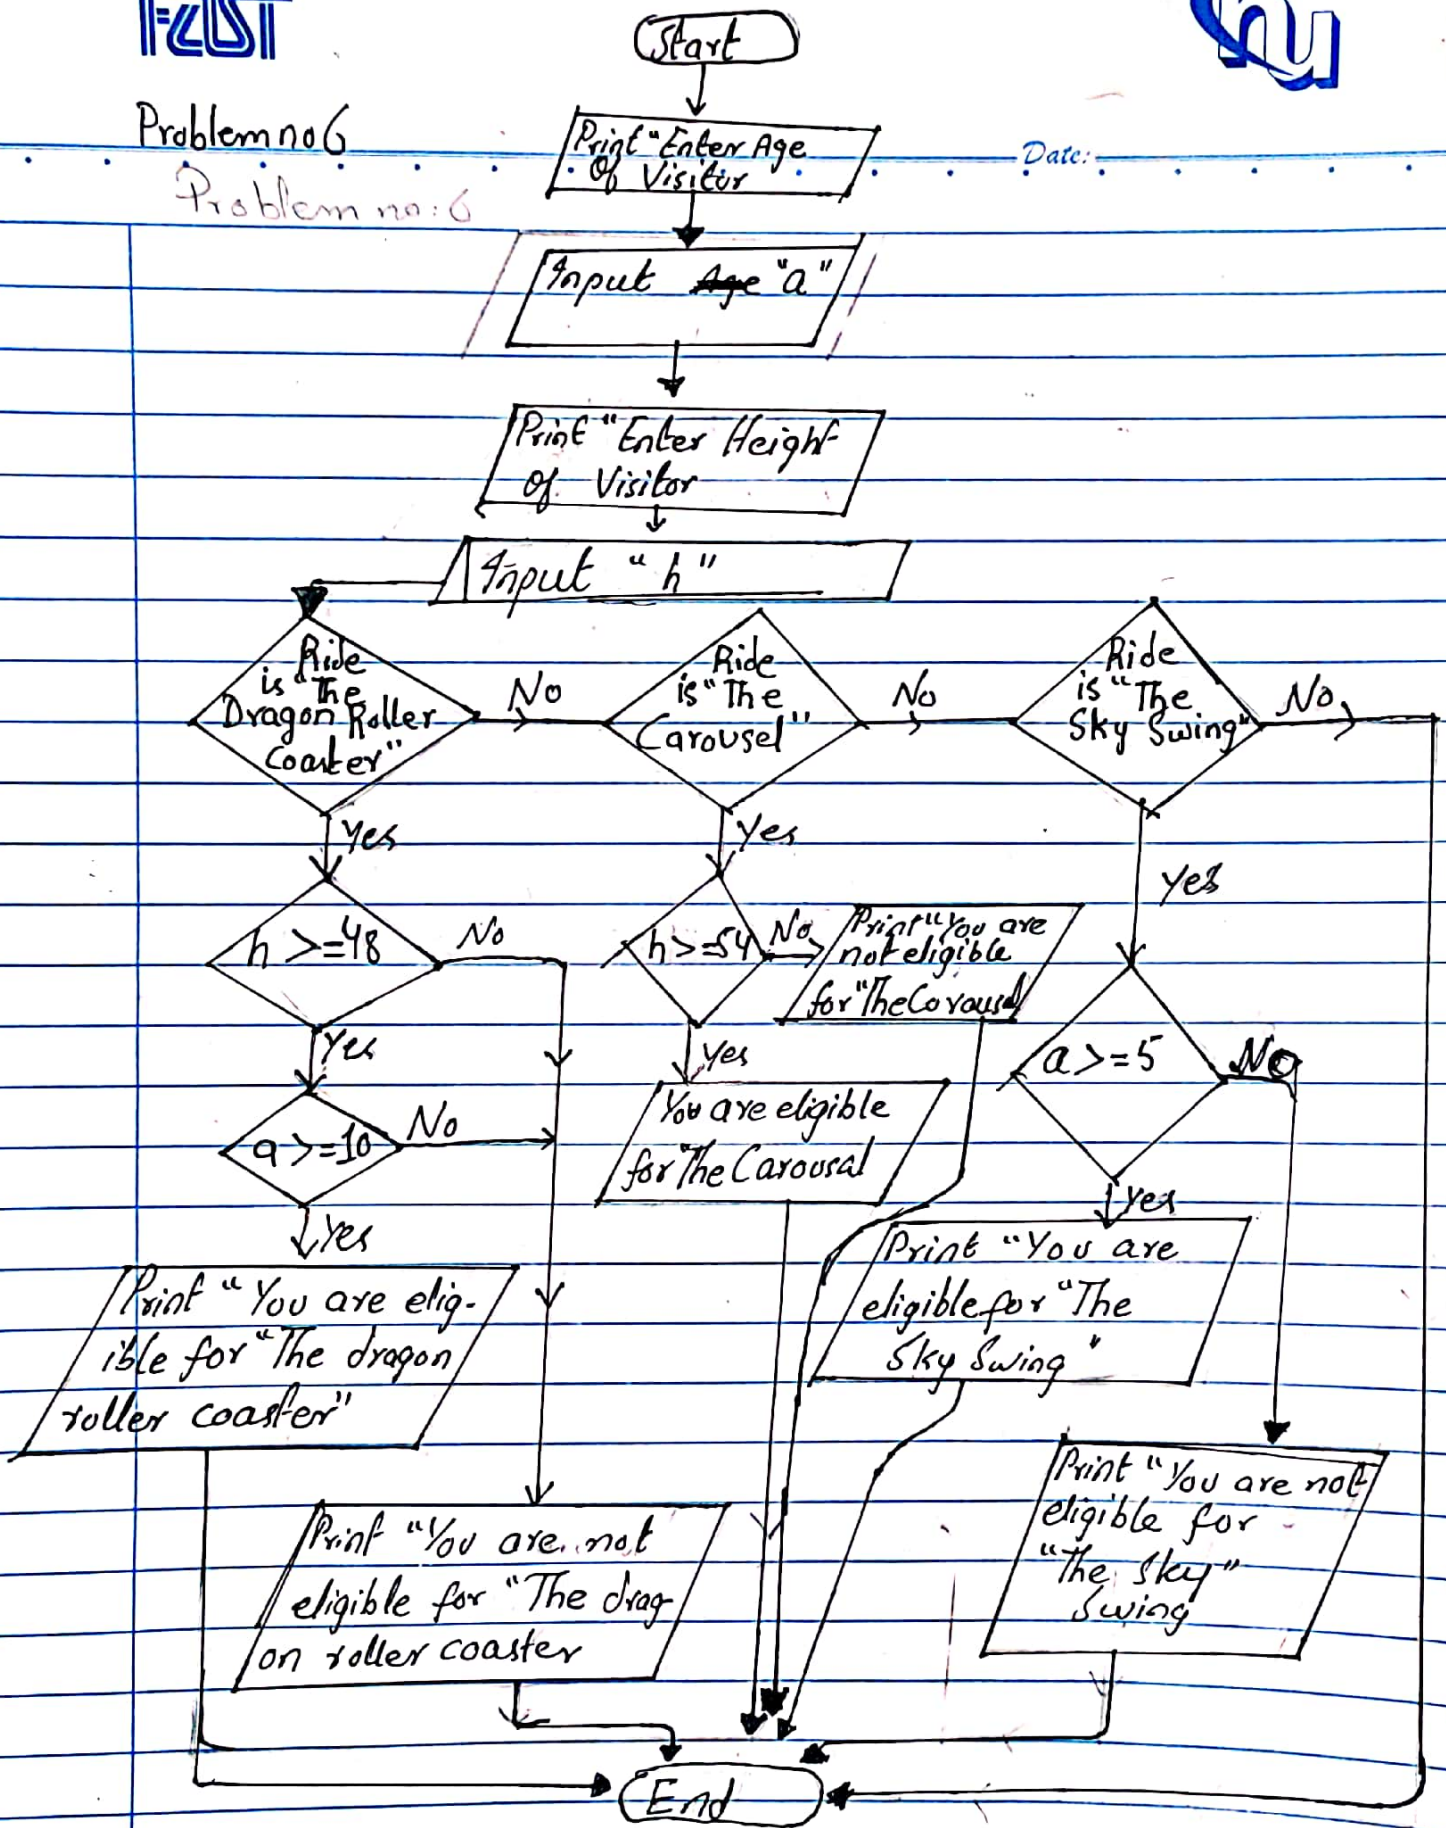 FCIST
nu
Start
Problem no 6
Print "Enter Age
Of Visitor
Date:
Problem no:6
Input Age "a"
Print "Enter Height
of Visitor
Input "h"
Ride
is "The
Dragon Roller
Coaster"
No
Ride
is "The
Carousel"
No
Ride
is "The
Sky Swing"
No
Yes
Yes
Yes
h >=48
No
h >=54
No
Print "You are
not eligible
for "The Carousal
Yes
Yes
a >=5
No
a >=10
No
You are eligible
for "The Carousal
Yes
Yes
Print "You are
eligible for "The
Sky Swing"
Print "You are elig-
ible for "The dragon
roller coaster"
Print "You are not
eligible for
"The Sky"
Swing
Print "You are not
eligible for "The drag
on roller coaster
End